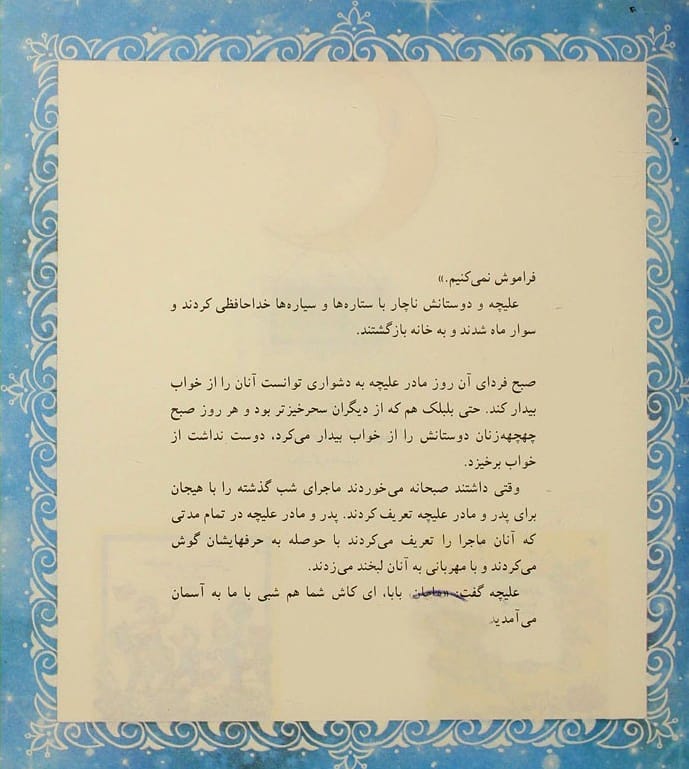 فراموش نمی‌کنیم.»
علیچه و دوستانش ناچار با ستاره‌ها و سیاره‌ها خداحافظی کردند و
سوار ماه شدند و به خانه بازگشتند.
صبح فردای آن روز مادر علیچه به دشواری توانست آنان را از خواب
بیدار کند. حتی بلبلک هم که از دیگران سحرخیزتر بود و هر روز صبح
چهچهه‌زنان دوستانش را از خواب بیدار می‌کرد، دوست نداشت از
خواب برخیزد.
وقتی داشتند صبحانه می‌خوردند ماجرای شب گذشته را با هیجان
برای پدر و مادر علیچه تعریف کردند. پدر و مادر علیچه در تمام مدتی
که آنان ماجرا را تعریف می‌کردند با حوصله به حرفهایشان گوش
می‌کردند و با مهربانی به آنان لبخند می‌زدند.
علیچه گفت: بابا، ای کاش شما هم شبی با ما به آسمان
می‌آمدید